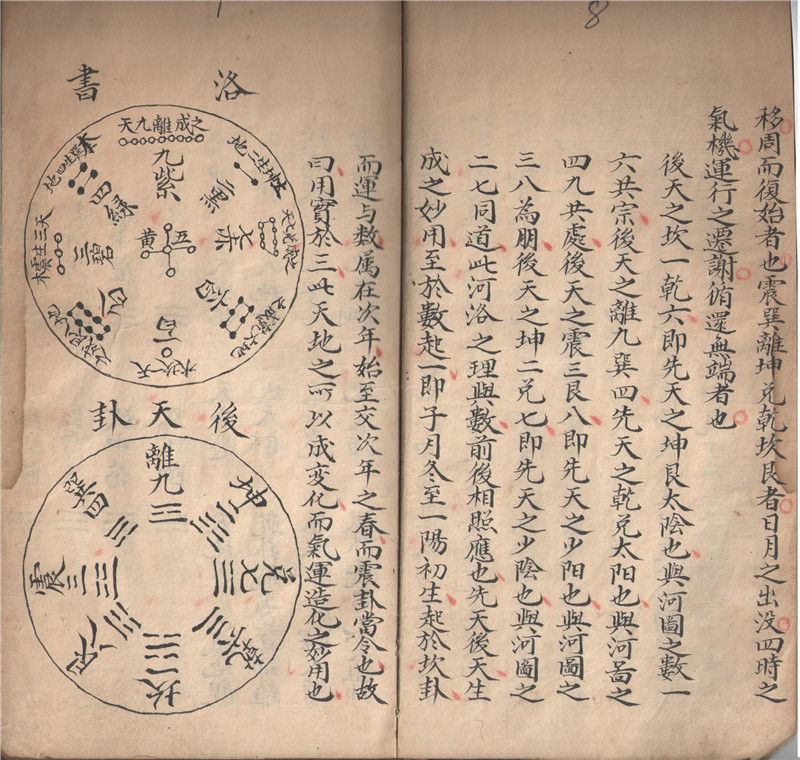 8
移周而復始者也震巽離坤兌乾坎艮者日月之出没四時之
氣機運行之遷謝循還無端者也
後天之坎一乾六即先天之坤艮太陰也與河圖之數一
六共宗後天之離九巽四先天之乾兌太陽也與河啚之
四九共處後天之震三艮八即先天之少陽也與河圖之
三八為朋後天之坤二兌七即先天之少陰也與河圖之
二七同道此河洛之理與數前後相照應也先天後天生
成之妙用至於數起一即子月冬至一陽初生起於坎卦
1
而運与数属在次年始至交次年之春而震卦當令也故
曰用實於三此天地之所以成变化而氣運造化之妙用也
洛書
之成離九天
九紫
二黒
四緑
三碧
五黄
七赤
六白
八白
一白
天三生
地四生
水坎一天
後天卦
離九
坤二
兌七
乾六
坎一
艮八
震三
巽四